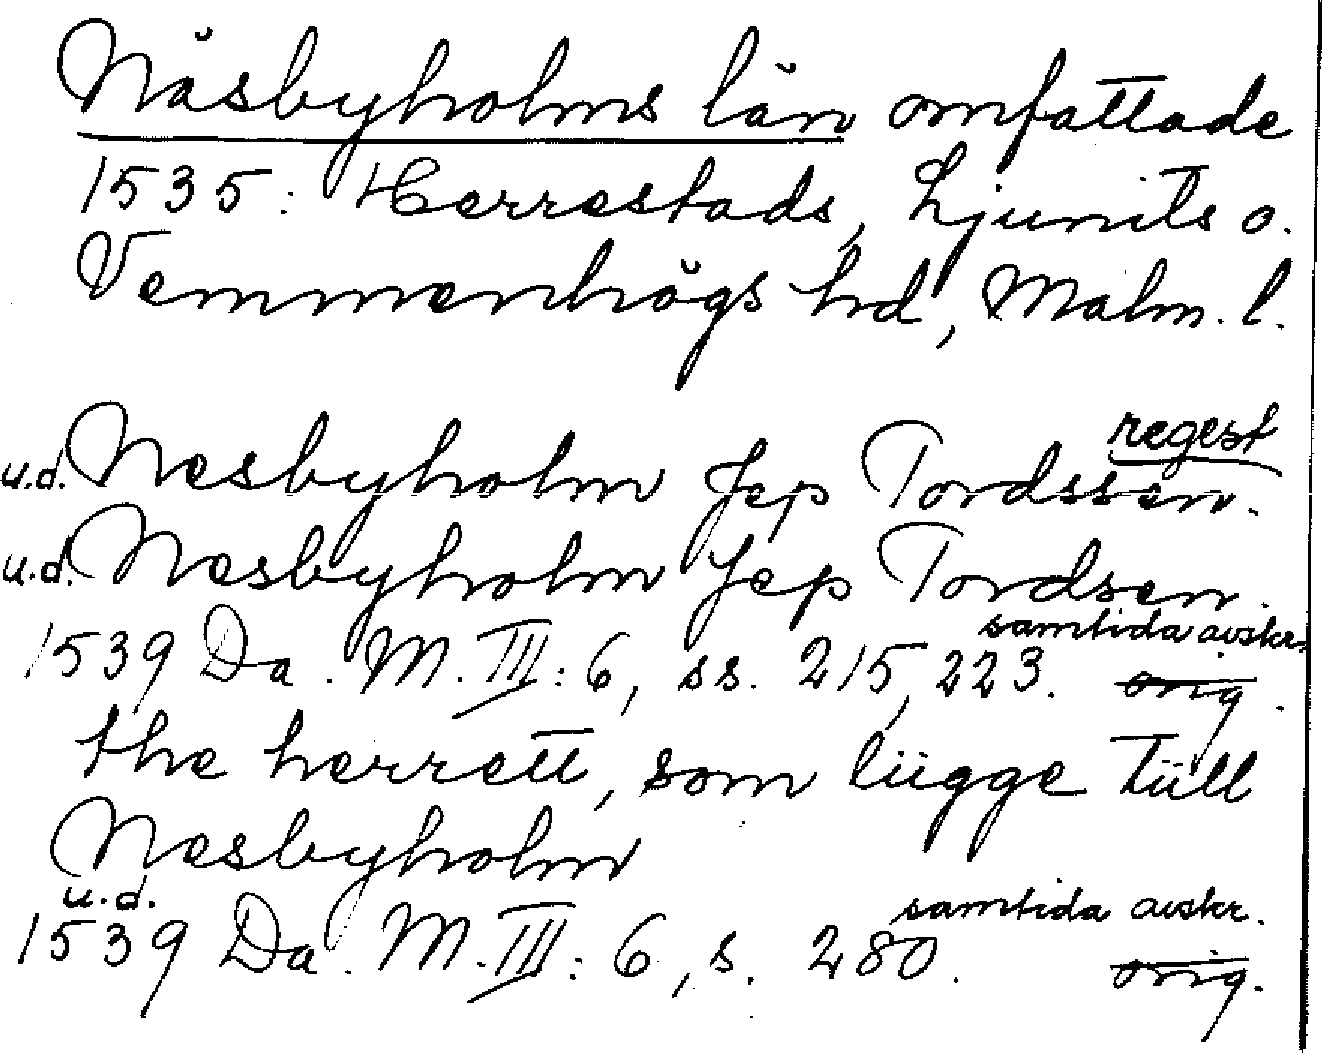 Näsbyholms län omfattade
1535: Herrestads, Ljunits o.
Vemmenhögs hrd, Malm. l.
regest
u.d. Nesbyholm Jep Tordssen.
u.d. Nesbyholm Jep Tordsen.
samtida avskr.
1539 Da. M. III: 6, ss. 215, 223. orig.
the herrett, som liigge tiill
Nesbyholm
u.d. samtida avskr.
1539 Da. M. III: 6, s. 280. orig.